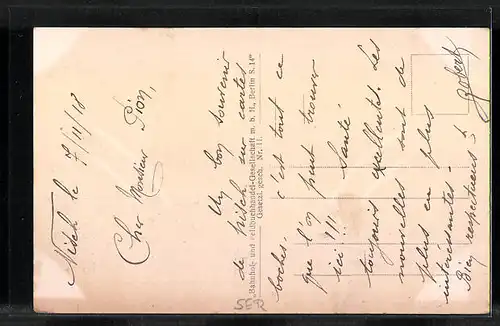 Nisch le 7/11/18
Cher Monsieur Pion,
Un bon souvenir
de Nisch sur cartes
boches. C'est tout ce
que l'on peut trouver
ici !!! Santé
toujours excellente. Les
nouvelles sont de
plus en plus
intéressantes -
Bien respectueux
Robert
"Bahnhofs- und Feldbuchhandel-Gesellschaft m. b. H., Berlin S. 14"
Gesetzl. gesch. Nr. 11.
SER